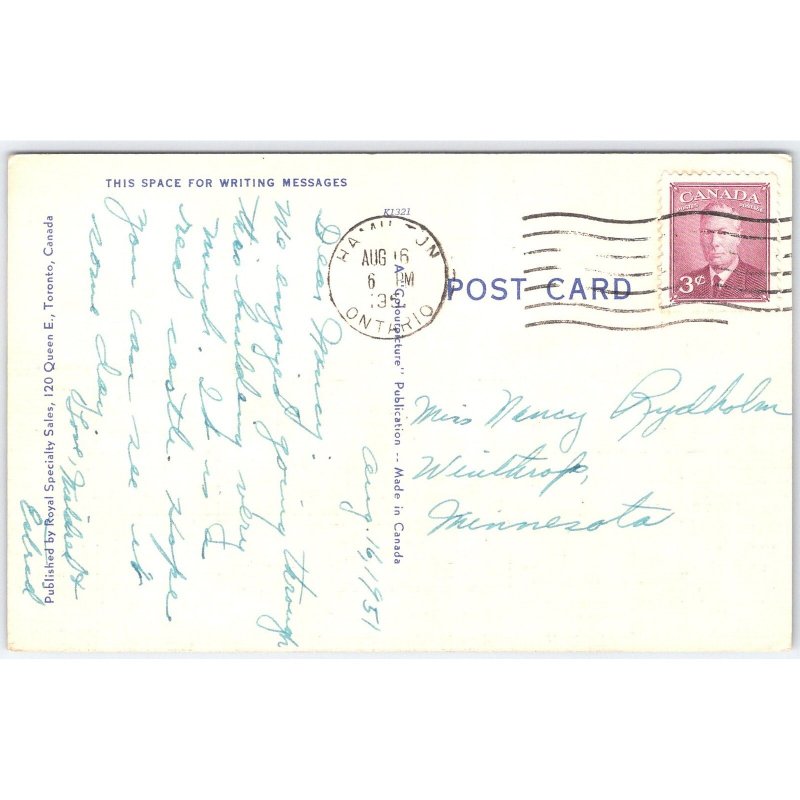 THIS SPACE FOR WRITING MESSAGES
Aug. 16, 1951
Dear Nancy:
We enjoyed going through
this building very
much. It is a
real castle. Hope
you can see it
some day.
Love, Mildred &
Published by Royal Specialty Sales, 120 Queen E., Toronto, Canada
K1321
A "Colourpicture" Publication -- Made in Canada
HAMILTON
AUG 16
6 PM
195
ONTARIO
POST CARD
CANADA
POSTES POSTAGE
3¢
Miss Nancy Rydholm
Winthrop,
Minnesota